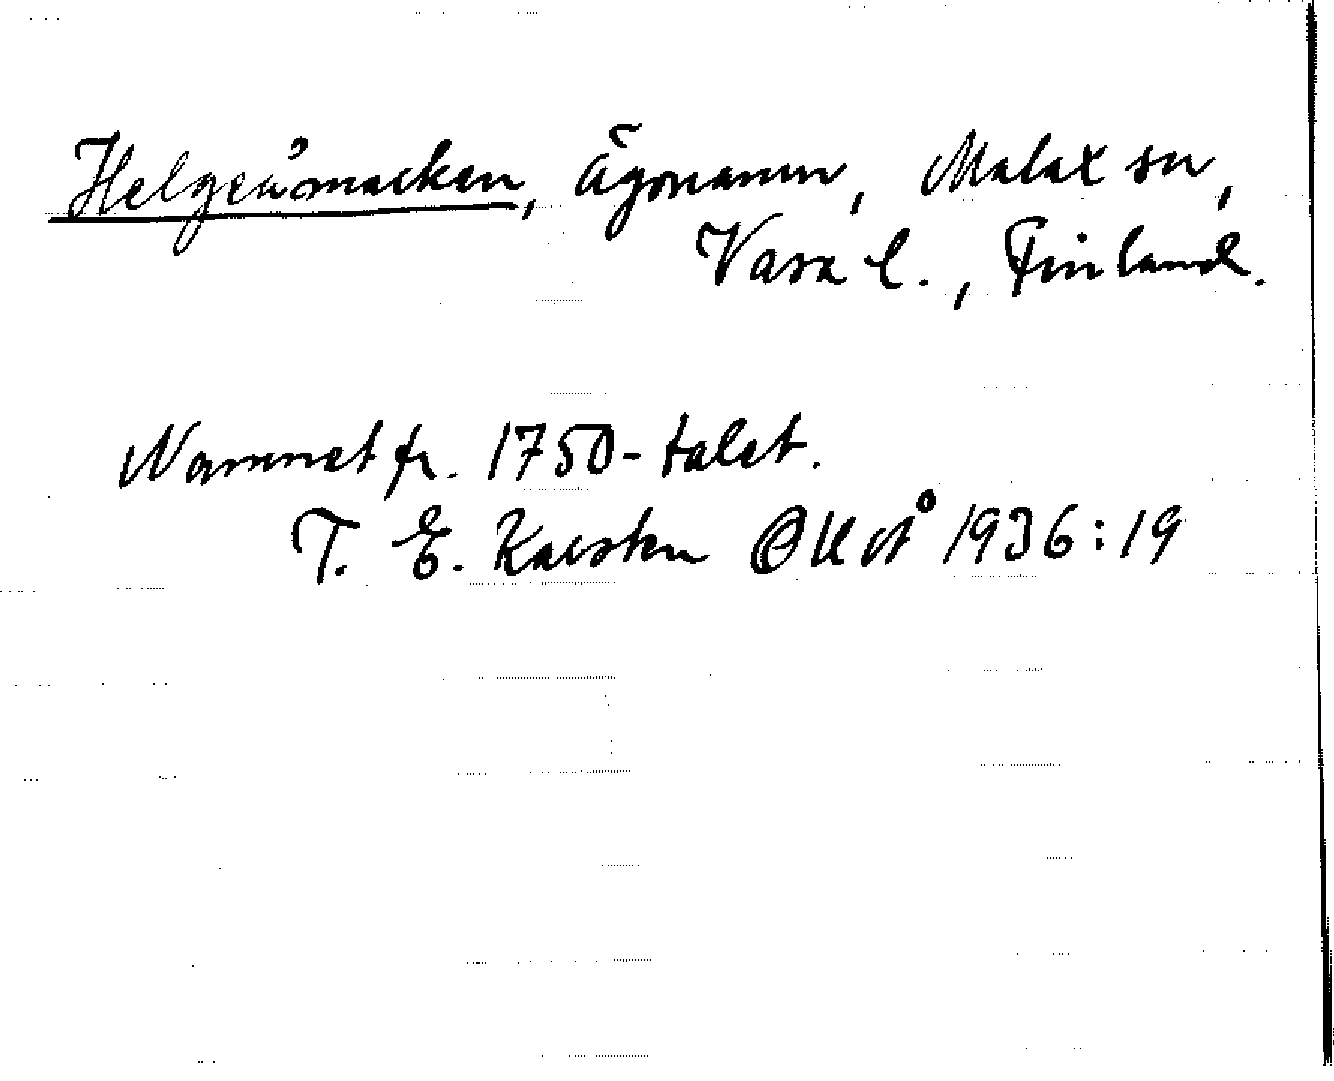 Helgeåmarken, Ägonamn, Malax sn,
Vasa l., Finland.
Namnet fr. 1750-talet.
T. E. Karsten 1936:19